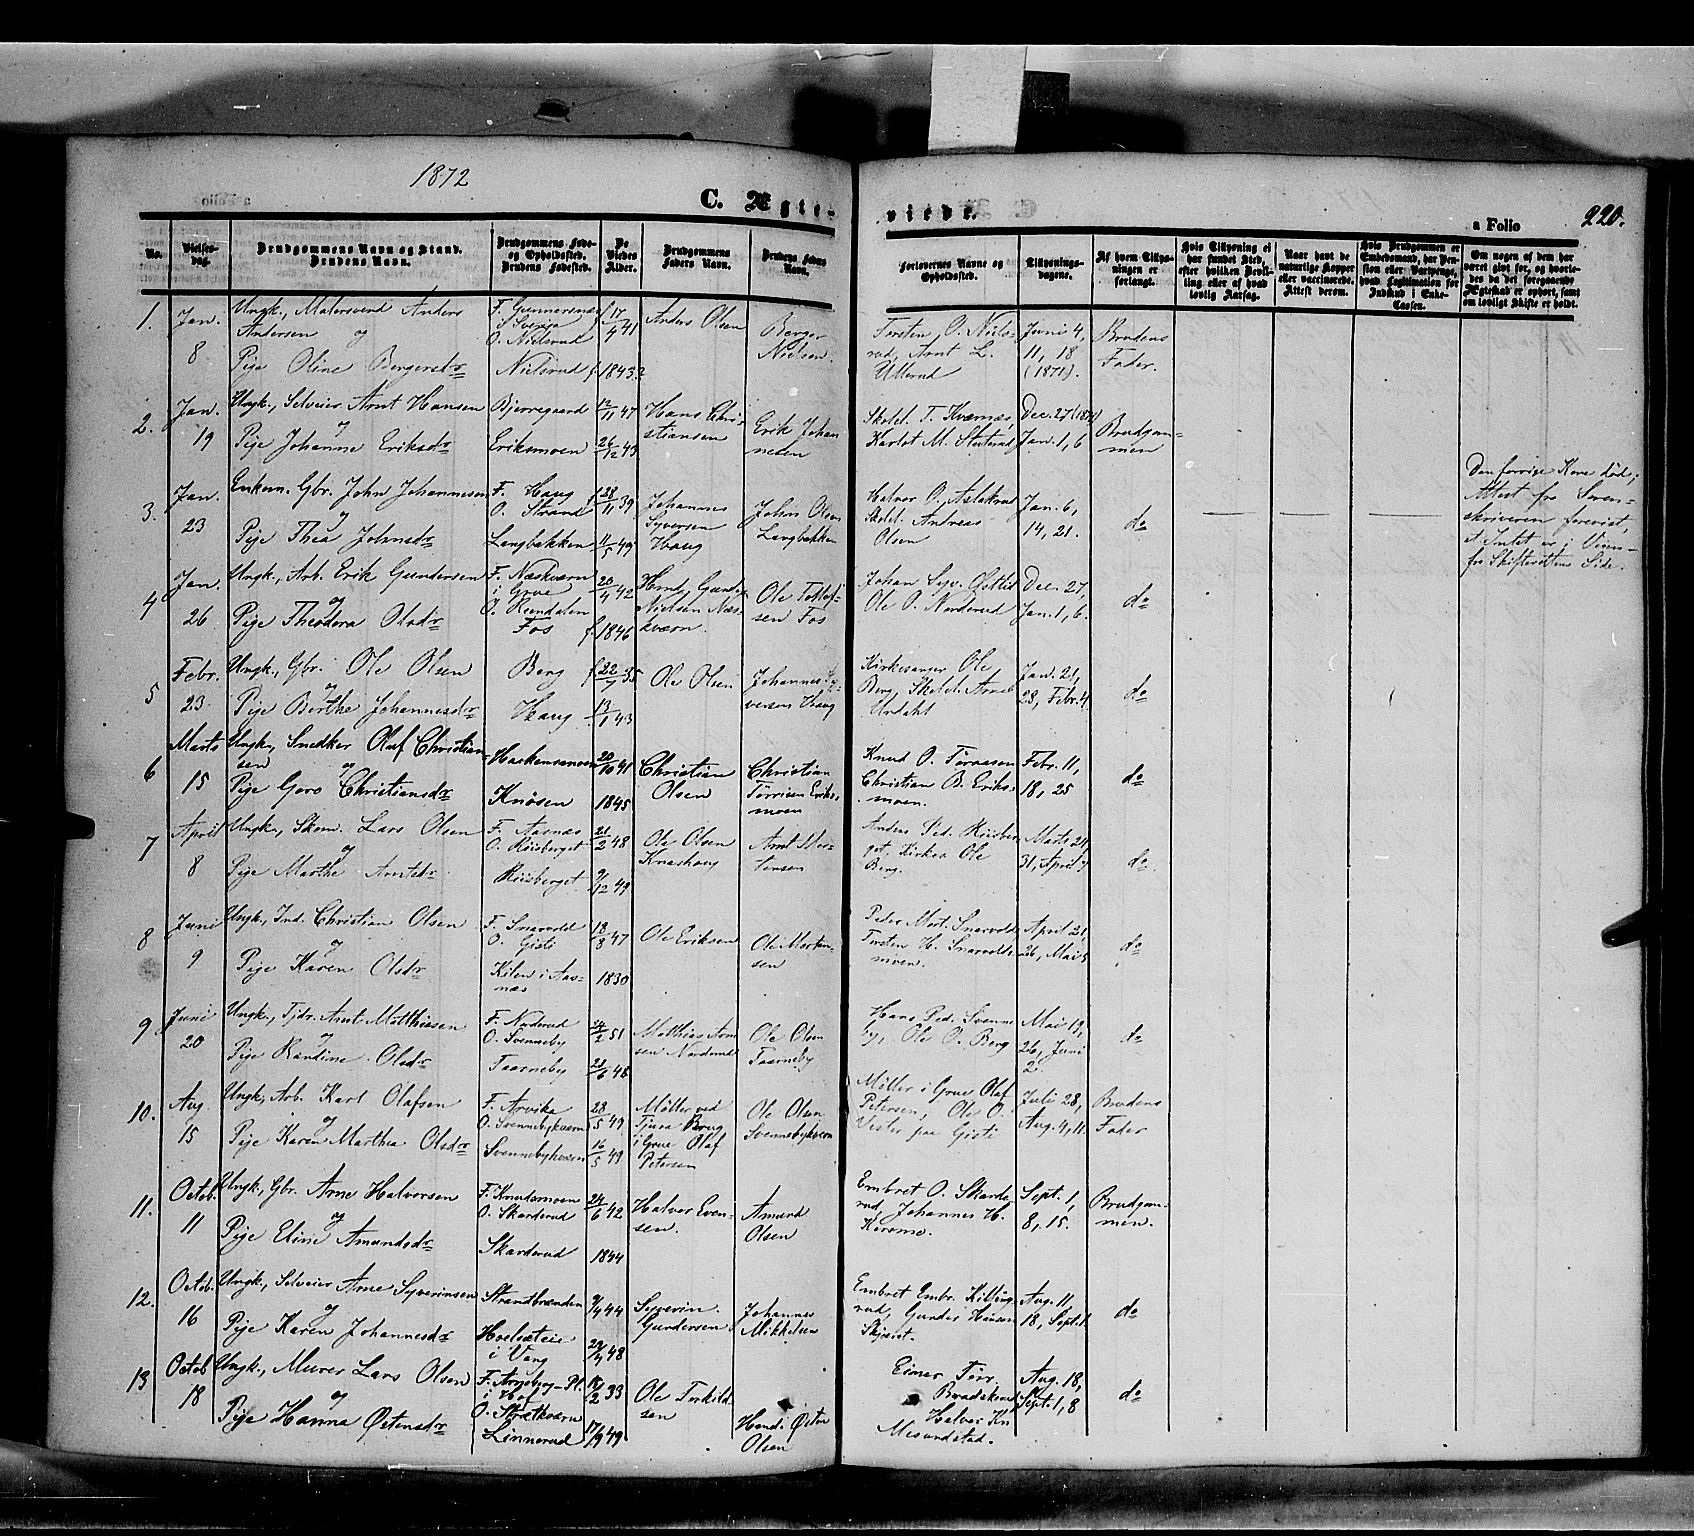 1872
C. Ægte-
vierde.
a Folio
220.
No.
Vielses-
dag.
Brudgommens Navn og Stand.
Brudens Navn.
Brudgommens Føde-
og Opholdssted.
Brudens Fødested.
De
Viedes
Alder.
Brudgommens
Faders Navn.
Brudens Faders
Navn.
Forlovernes Navne og
Opholdssted.
Tillysnings-
dagene.
Af hvem Tillys-
ningen er
forlangt.
Hvis Tillysning ei
har fundet Sted,
efter hvilken Bevil-
ling eller af hvad
lovlig Aarsag.
Naar havt de
naturlige Kopper
eller vaccinerede.
Attest derom.
Hvis Brudgommen er
Embedsmand, har Pen-
sion eller Vartpenge,
hvad Legitimation for
Indskud i Enke-
Cassen.
Om nogen af dem har
været givt før, og hvorle-
des da det foregaaende
Ægteskab er ophørt, samt
om lovligt Skifte er holdt.
1.
Jan.
8
Ungk., Anders
Andersen og
Pige Oline Bergersdr
F. Gunnarsnæs
i Sverige
O. Nielsrud
Nielsrud
f. 17/4 41
f. 1843?
Anders Olsen
Berger
Nielsen.
Torsten O. Niels-
rud, Arnt L.
Ullerud
Juni 4,
11, 18
(1871).
Brudens
Fader.
2.
Jan.
19
Ungk., Selveier Arnt Hansen
og
Pige Johanne Eriksdr
Bjerregaard
Eriksmoen
12/11 47
26/12 43
Hans Chri-
stiansen
Erik Johan-
nesen
Skolel. T. Kværnæs,
Karlot M.
Dec. 27 (1871)
Jan. 1, 6
Brudgom-
men
3.
Jan.
23
Enkem. Gbr. John Johannesen
og
Pige Thea Johnsdr
F. Haug
O. Strand
Langbakken
f. 28/11 39
11/5 49
Johannes
Syversen
Haug
John Olsen
Langbakken
Halvor O. Aslakrud
Skolel. Andreas
Olsen
Jan. 6,
14, 21.
do
Den forrige Kone død;
Attest fra Soren-
skriveren forevist,
at Intet er i Veien
fra Skifterettens Side.
4
Jan.
26
Ungk., Arb. Erik Gundersen
og
Pige Theodora Olsdr
F. Næskværn
i Grue
O. Rundalen
Fos
20/4 42
f. 1846
Hmd. Gunder
Nielsen Næs-
kværn.
Ole Tollef-
sen Fos
Johan Syv. Østlid
Ole O. Norderud
Dec. 27,
Jan. 1, 6.
do
5
Febr.
23
Ungk., Gbr. Ole Olsen
og
Pige Berthe Johannesdr
Berg
Haug
f. 22/7 35
13/1 43
Ole Olsen
Johannes Sy-
versen Haug
Kirkesanger Ole
Berg, Skolel. Arne
Urdahl
Jan. 21,
28, Febr. 4
do
6
Marts
15
Ungk., Snedker Oluf Christian-
sen og
Pige Goro Christiansdr
Haakensmoen
Knösen
20/10 41
1845
Christian
Olsen
Christian
Törrisen Eriks-
moen
Knud O. Töraasen
Christian B. Eriks-
moen.
Febr. 11,
18, 25
do
7
April
8
Ungk., Skom. Lars Olsen
og
Pige Marthe Arntsdr
F. Aasnæs
O. Riisberget
Riisberget
21/2 48
9/12 49
Ole Olsen
Knashaug
Arnt Mor-
tensen
Anders Ped. Riisber-
get, Kirkes. Ole
Berg.
Marts 24,
31, April 7
do.
8
Juni
9
Ungk., Ind. Christian Olsen
og
Pige Karen Olsdr
F. Snarvold
O. Gisti
Kilen i Aas-
næs
18/8 47
1830
Ole Eriksen
Ole Morten-
sen
Peder Mort. Snarvold
Torsten H. Snarvolds-
moen.
April 21,
26, Mai 5
do
9
Juni
20
Ungk., Tjdr. Arnt Matthiesen
og
Pige Randine Olsdr
F. Norderud
O. Svenneby
Taarneby
24/2 51
22/6 48
Matthias Arn-
sen Norderud
Ole Olsen
Taarneby
Hans Ped. Svenne-
by, Ole O. Berg
Mai 19,
26, Juni
2.
do
10.
Aug.
15
Ungk., Arb. Karl Olafsen
og
Pige Karen Martha Olsdr
F. Arvika
O. Svennebykværn
Svennebykværn
28/5 49
16/5 49
Møller ved
Tjura Brug
i Grue Olaf
Petersen
Ole Olsen
Svennebykværn
Møller i Grue Olaf
Petersen, Ole O.
Vester paa Gisti
Juli 28,
Aug. 4, 11.
Brudens
Fader
11.
Octob.
11
Ungk., Gbr. Arne Halvorsen
og
Pige Eline Amundsdr
F. Knudsmoen
O. Skarderud
Skarderud
24/6 42
1844
Halvor Even-
sen.
Amund
Olsen
Embret O. Skarde-
rud, Johannes H.
Keramo.
Sept. 1,
8, 15.
Brudgom-
men.
12.
Octob.
16
Ungk., Selveier Arne Syverinsen
og
Pige Karen Johannesdr
Strandbranden
Hoelsæteie
i Vang
9/4 44
29/4 48
Syverin
Gundersen
Johannes
Mikkelsen
Embret Embr. Killing-
rud, Gunder Hansen
Skjæret.
Aug. 11,
18, Sept. 1.
do
13
Octob
18
Ungk., Murer Lars Olsen
og
Pige Hanna Østensdr
F. Arneberg-Pl.
i Hof
O. Strætkværn
Linnerud
18/2 33
17/9 49
Ole Torkild-
sen
Hmd. Østen
Olsen
Einer Törr.
Halvor Kn
Mesundstad.
Aug. 18,
Sept. 1, 8
do